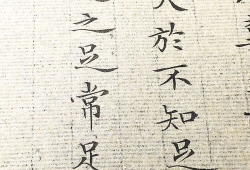 於不知足
之足常足